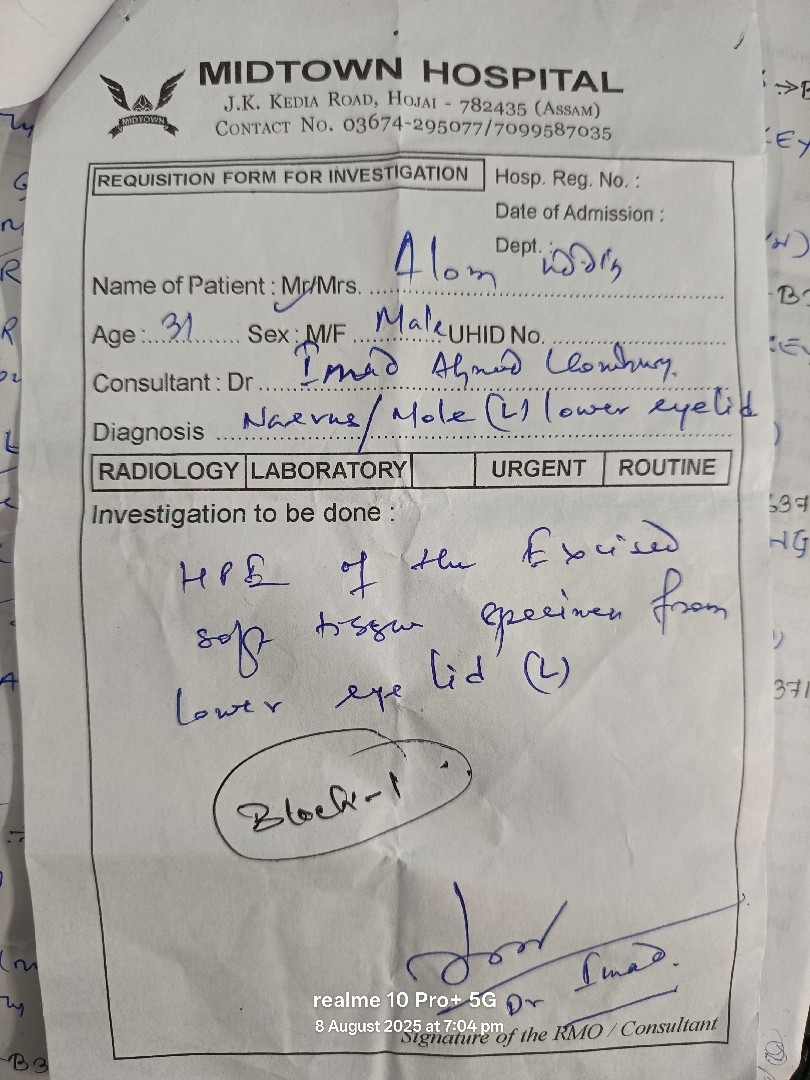 MIDTOWN HOSPITAL
MIDTOWN
J.K. KEDIA ROAD, HOJAI - 782435 (ASSAM)
CONTACT NO. 03674-295077/7099587035
REQUISITION FORM FOR INVESTIGATION
Hosp. Reg. No. :
Date of Admission :
Dept. :
Name of Patient : Mr/Mrs. Alom
Age : 31 Sex : M/F Male UHID No.
Consultant : Dr Imad Ahmed
Diagnosis Naevus/Mole (L) lower eyelid
RADIOLOGY LABORATORY URGENT ROUTINE
Investigation to be done :
HPE of the Excised
soft tissue specimen from
lower eye lid (L)
Block-1
Dr Imad.
Signature of the RMO / Consultant
realme 10 Pro+ 5G
8 August 2025 at 7:04 pm